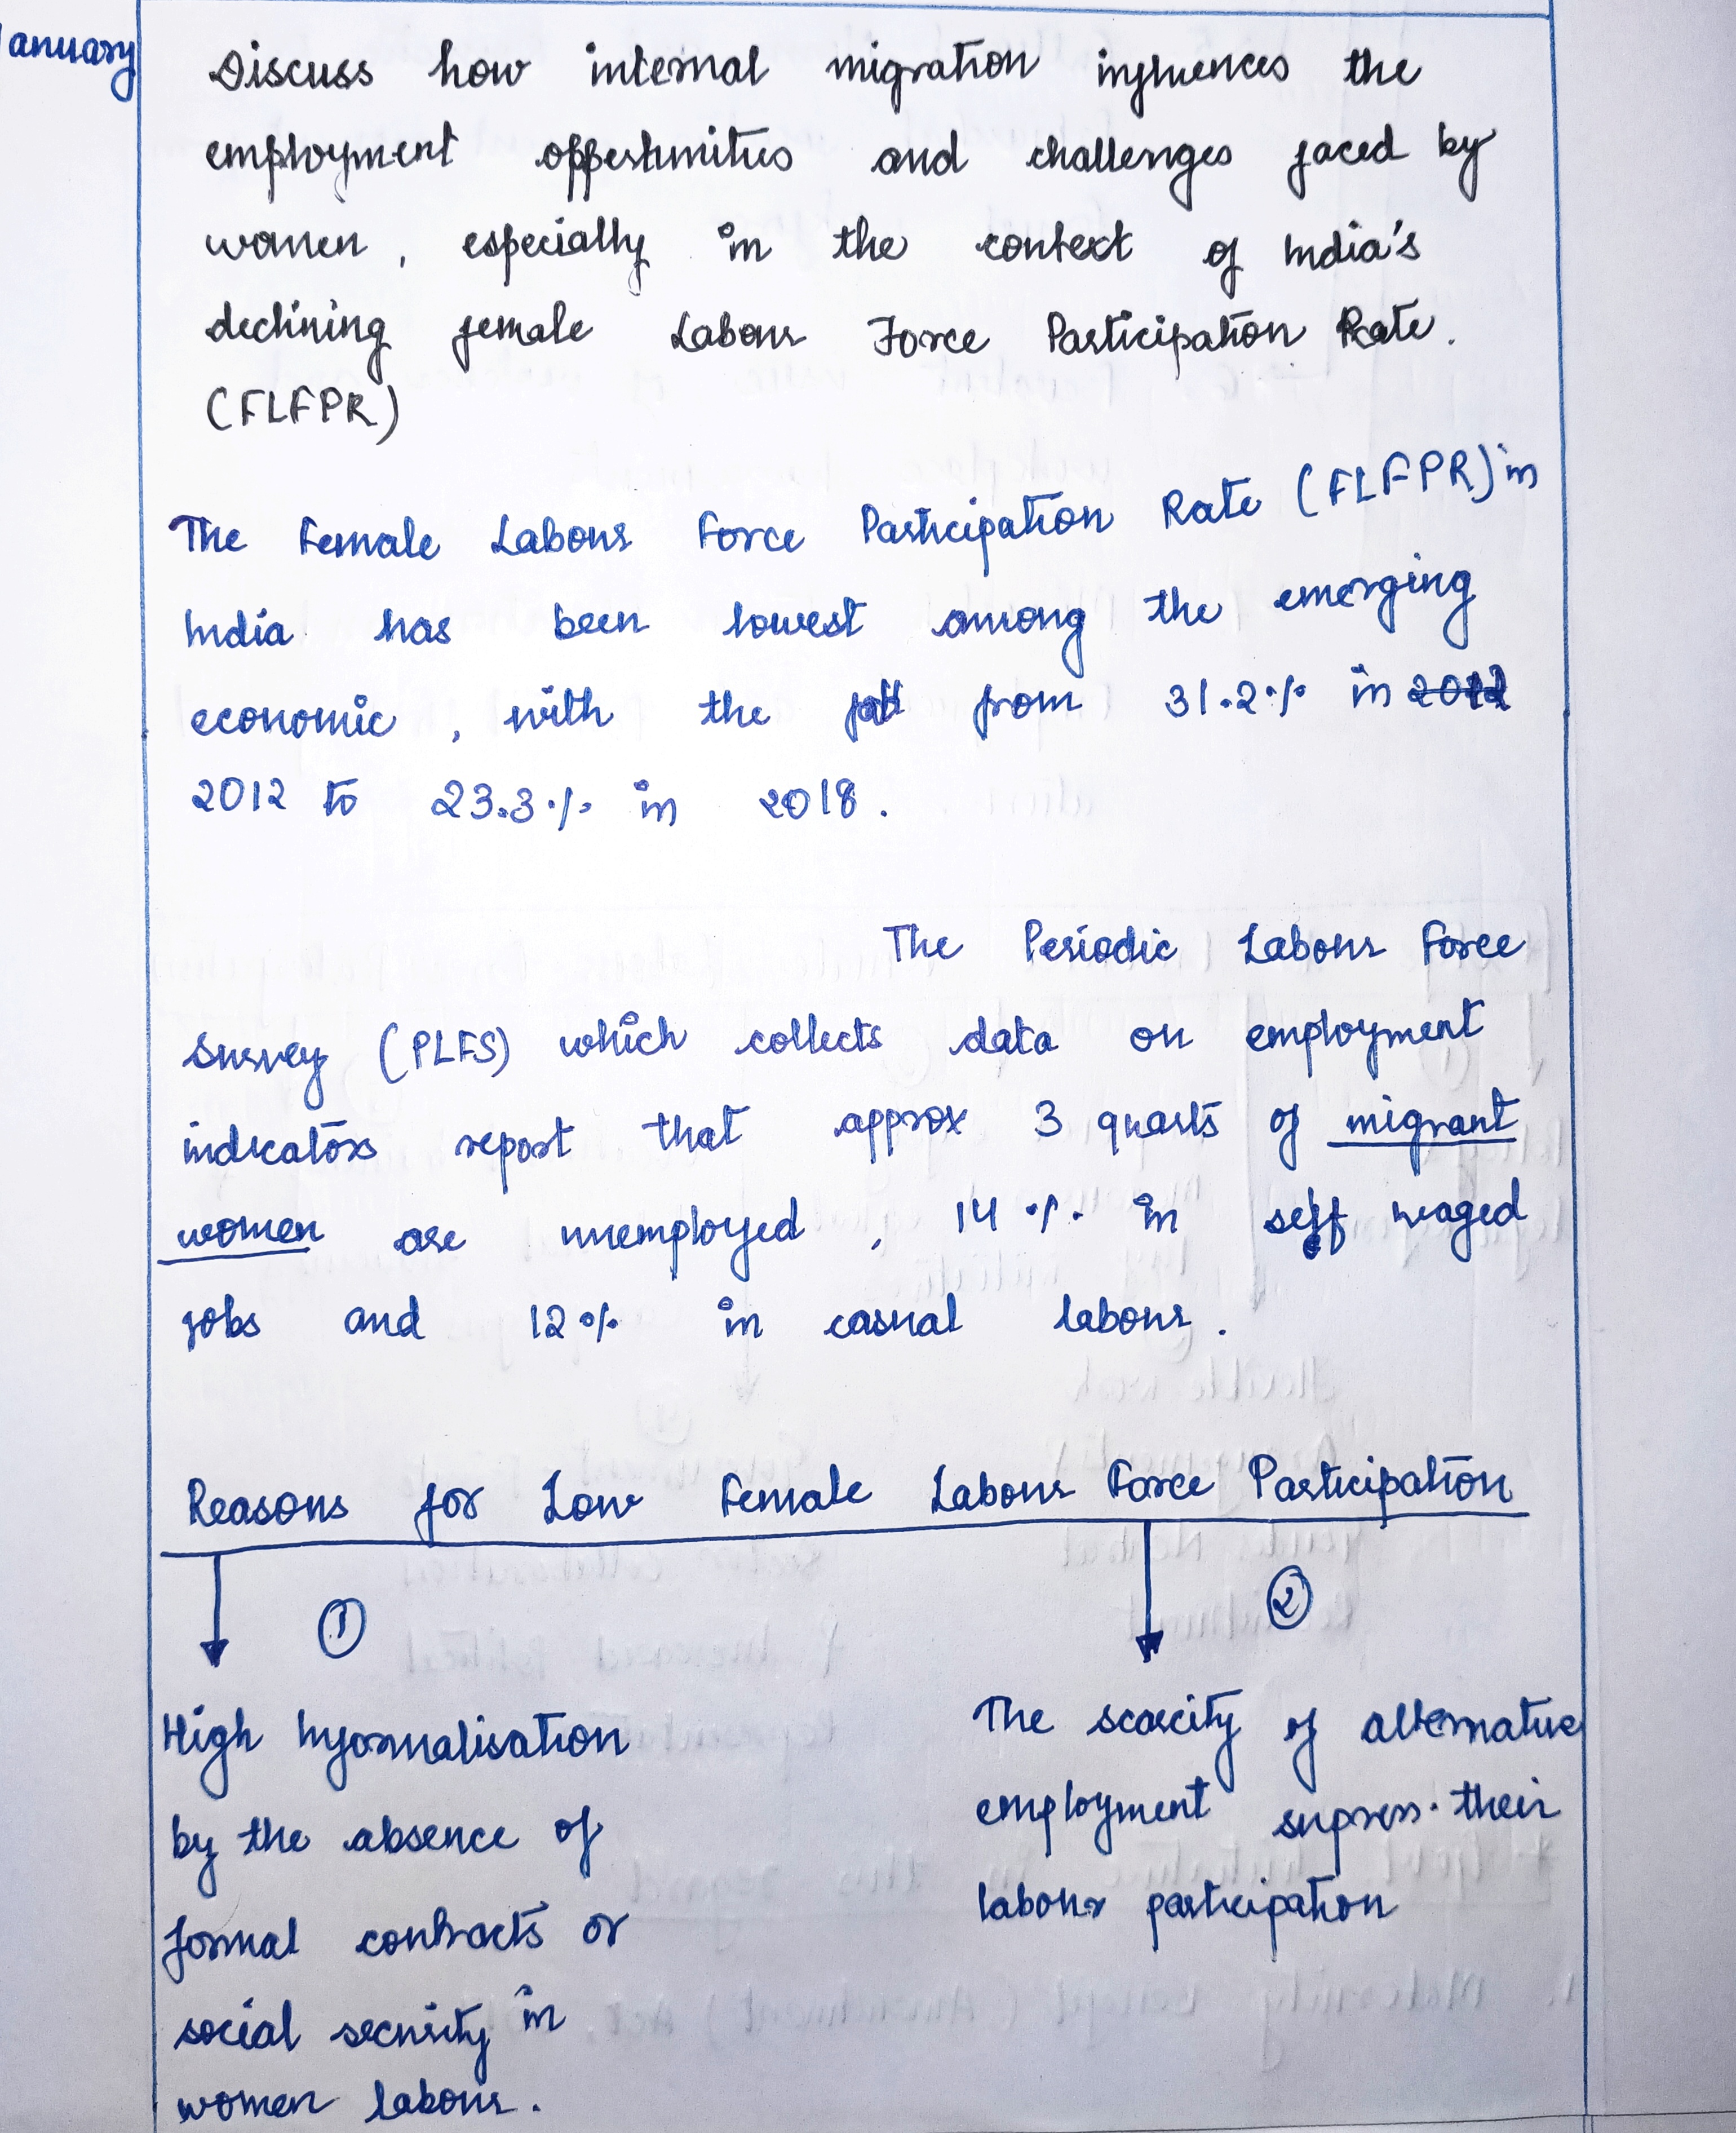 January
Discuss how internal migration influences the
employment opportunities and challenges faced by
women, especially in the context of India's
declining female Labour Force Participation Rate.
(FLFPR)
The Female Labour Force Participation Rate (FLFPR) in
India has been lowest among the emerging
economic, with the fall from 31.2% in 2012
2012 to 23.3% in 2018.
The Periodic Labour Force
Survey (PLFS) which collects data on employment
indicators report that approx 3 quarts of migrant
women are unemployed, 14% in self waged
jobs and 12% in casual labour.
Reasons for Low Female Labour Force Participation
1
2
High Informalisation
by the absence of
formal contracts or
social security in
women labour.
The scarcity of alternative
employment supress their
labour participation